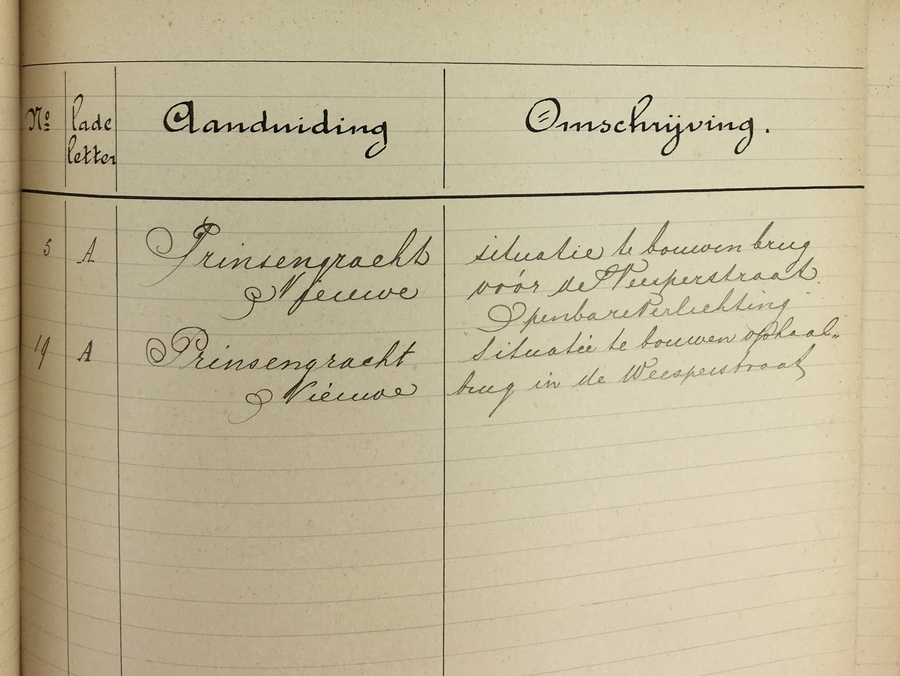 No lade letter Aanduiding Omschrijving.
5 A Prinsengracht situatie te bouwen brug
Nieuwe vóór de Weesperstraat.
Openbare Verlichting
19 A Prinsengracht Situatie te bouwen ophaal-
Nieuwe brug in de Weesperstraat